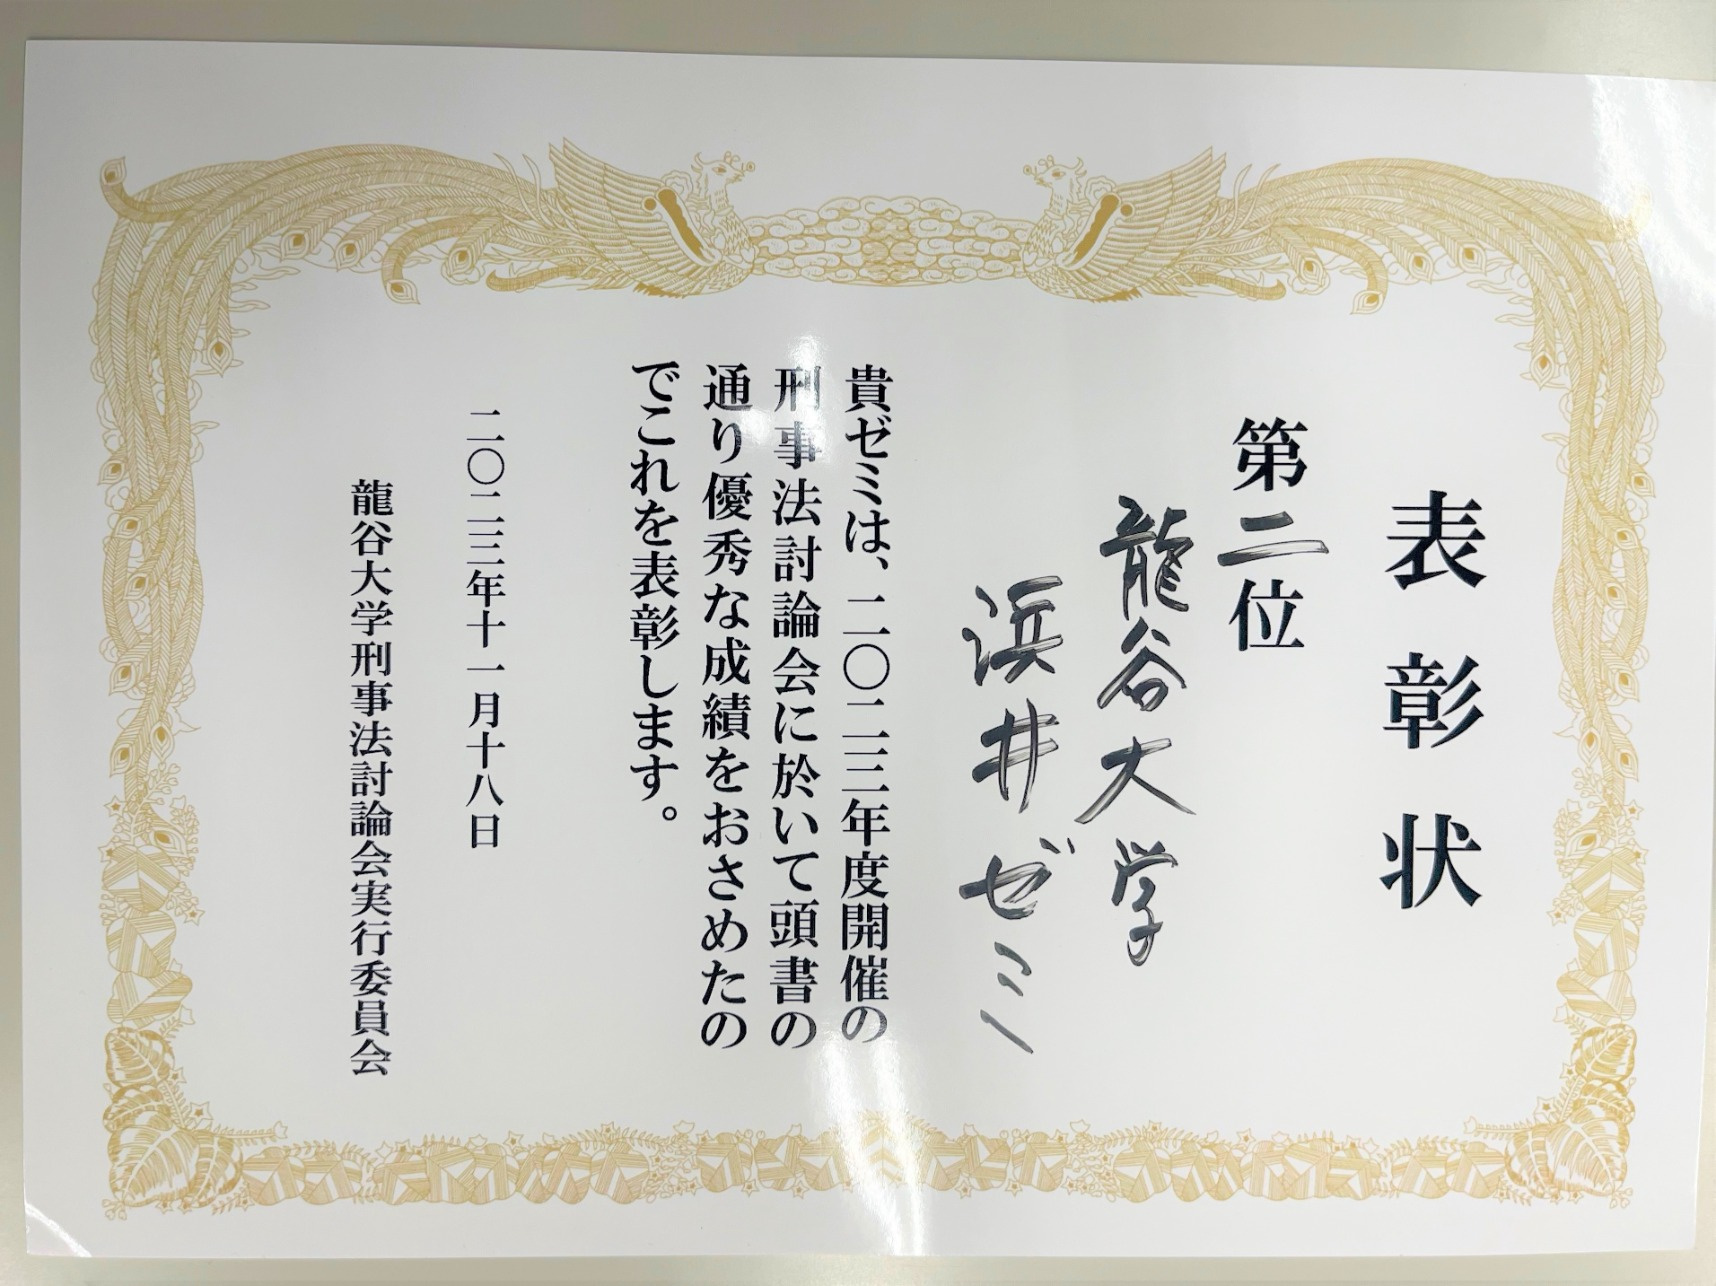 表彰状
第二位
龍谷大学
浜井ゼミ
貴ゼミは、二〇二三年度開催の
刑事法討論会に於いて頭書の
通り優秀な成績をおさめたの
でこれを表彰します。
二〇二三年十一月十八日
龍谷大学刑事法討論会実行委員会